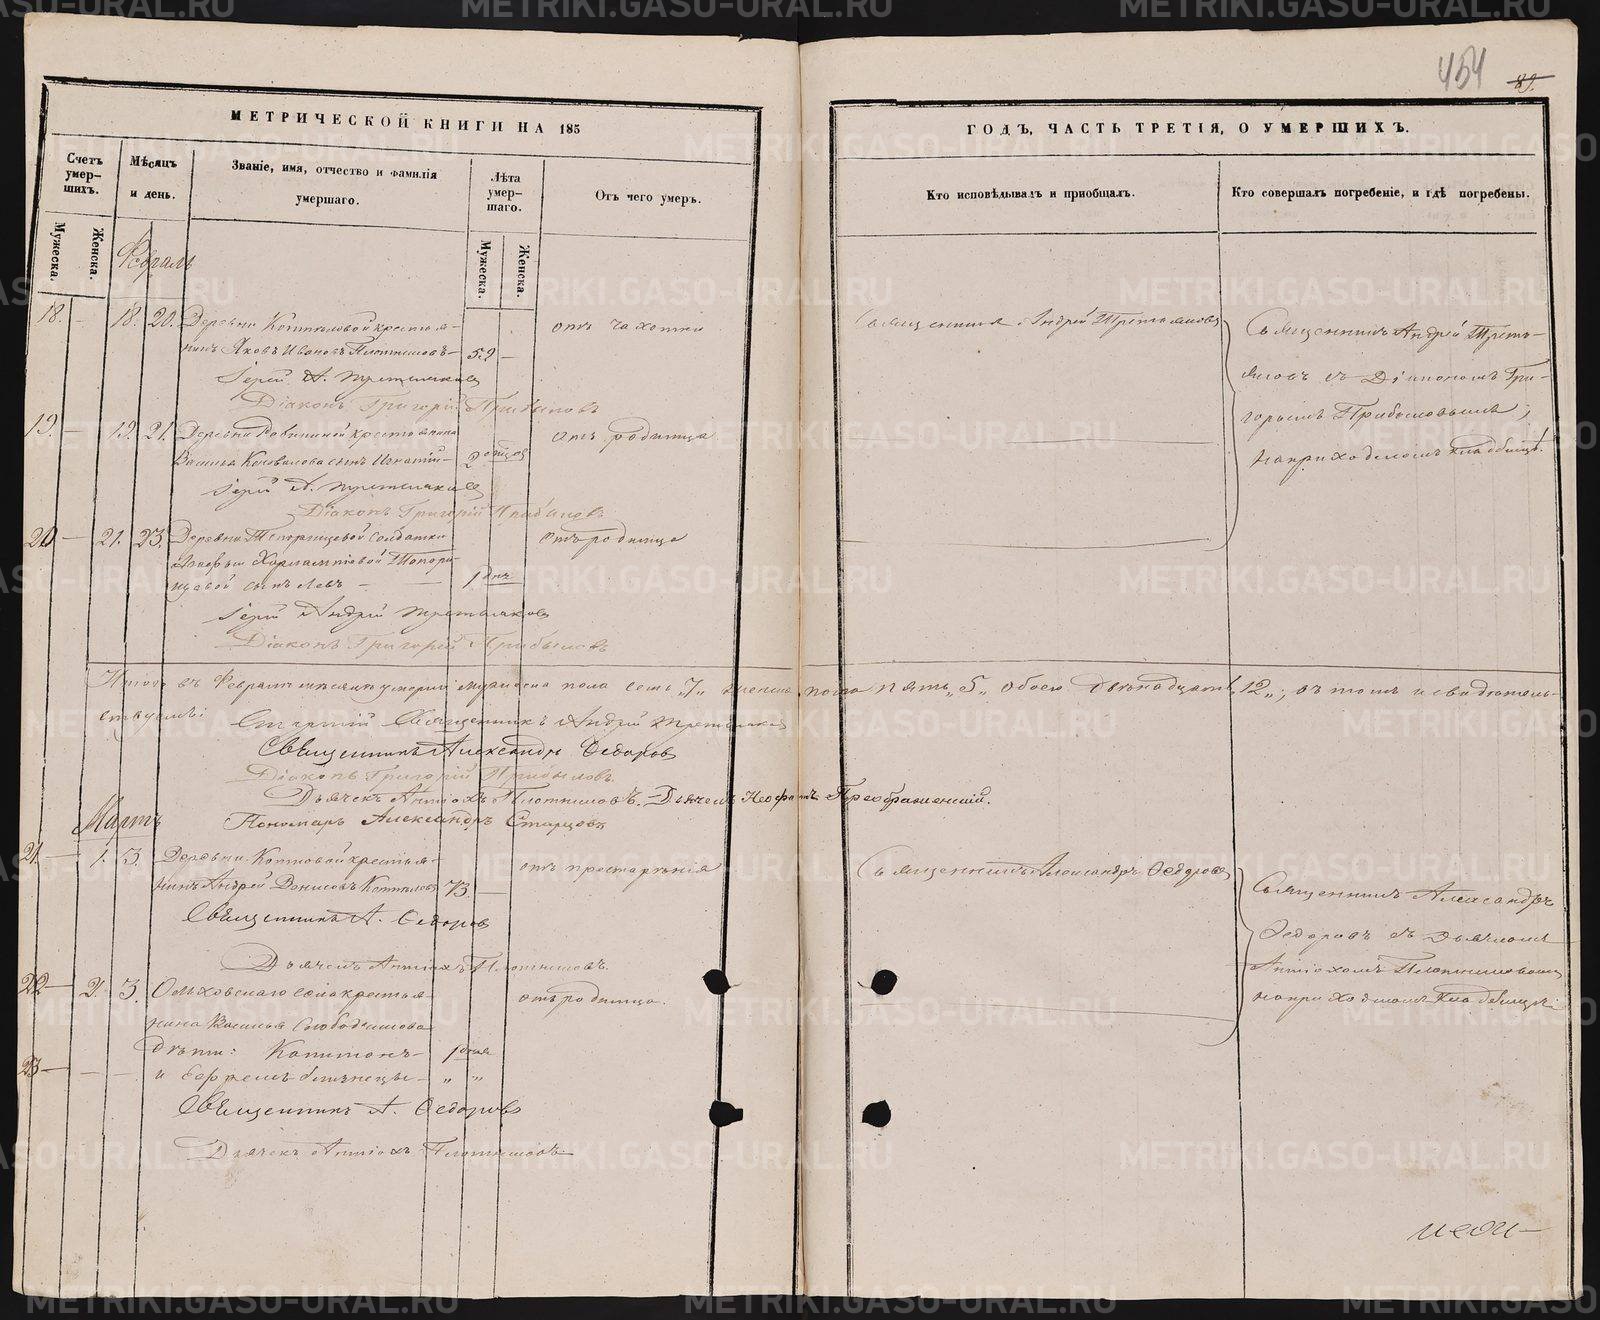 454
89.
МЕТРИЧЕСКОЙ КНИГИ НА 185
ГОДЪ, ЧАСТЬ ТРЕТІЯ, О УМЕРШИХЪ.
Счетъ умер-шихъ.
Мужеска.
Женска.
Мѣсяцъ и день.
Званіе, имя, отчество и фамилія умершаго.
Лѣта умер-шаго.
Мужеска.
Женска.
Отъ чего умеръ.
Кто исповѣдывалъ и пріобщалъ.
Кто совершалъ погребеніе, и гдѣ погребены.
Февраль
18. — 18. 20. Деревни Котельовой крестья-
нинъ Яковъ Ивановъ Плотниковъ — 52 —
отъ чахотки
Священникъ Андрей Третьяковъ
Священникъ Андрей Треть-
яковъ съ Діакономъ Гри-
горьемъ
на приходскомъ кладбищѣ.
Іерей А. Третьяковъ
Діаконъ Григорій Прибыловъ
19. — 19. 21. Деревни крестьянина
Василья Коновалова сынъ Игнатій — 2
отъ родимца
Іерей А. Третьяковъ
Діаконъ Григорій Прибыловъ
20 — 21. 23. Деревни Топорищевой солдатки
Харлампіевой Топори-
щевой сынъ Левъ — 1 днь
отъ родимца
Іерей Андрей Третьяковъ
Діаконъ Григорій Прибыловъ
Итого въ Февралѣ мѣсяцѣ умерло мужеска пола семь „7„ женска пола пять „5„ обоего двѣнадцать „12„; въ томъ и свидѣтель-
ствуемъ:
Священникъ Андрей Третьяковъ
Священникъ Александръ Ѳедоровъ
Діаконъ Григорій Прибыловъ.
Дьячекъ Антіохъ Плотниковъ. Дьячекъ Неофитъ Преображенскій.
Пономарь Александръ Старцовъ
Мартъ
21. — 1. 3. Деревни крестья-
нинъ Андрей Денисовъ Котельовъ 73. —
отъ престарѣнія
Священникъ Александръ Ѳедоровъ
Священникъ Александръ
Ѳедоровъ съ Дьячкомъ
Антіохомъ Плотниковымъ
на приходскомъ кладбищѣ.
Священникъ А. Ѳедоровъ
Дьячекъ Антіохъ Плотниковъ.
22 — 2. 3. Ольховскаго села крестья-
нина Василья Слободчикова
отъ родимца.
дѣти: Капитонъ — 1 дня
23 — — — и Ефремъ близнецы — „ „
Священникъ А. Ѳедоровъ
Дьячекъ Антіохъ Плотниковъ
METRIKI.GASO-URAL.RU